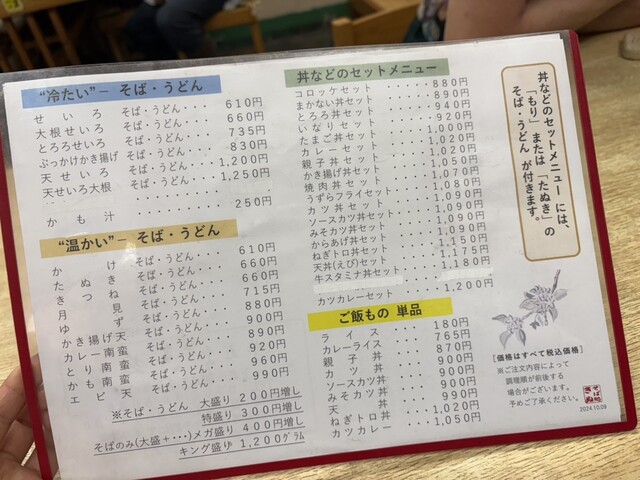 "冷たい"― そば・うどん
せいろ そば・うどん・・・ 610円
大根せいろ そば・うどん・・・ 660円
とろろせいろ そば・うどん・・・ 735円
ぶっかけかき揚げ そば・うどん・・・ 830円
天せいろ そば・うどん・・・ 1,200円
天せいろ大根 そば・うどん・・・ 1,250円
かも汁 ・・・・・・・・ 250円
"温かい"― そば・うどん
かけ そば・うどん・・・ 610円
たぬき そば・うどん・・・ 660円
きつね そば・うどん・・・ 660円
月見 そば・うどん・・・ 715円
ゆず そば・うどん・・・ 880円
かき揚げ天 そば・うどん・・・ 900円
カレー南蛮 そば・うどん・・・ 890円
とり南蛮 そば・うどん・・・ 920円
かも南蛮 そば・うどん・・・ 960円
エビ天 そば・うどん・・・ 990円
※そば・うどん 大盛り 200円増し
特盛り 300円増し
そばのみ(大盛+・・・)メガ盛り 400円増し
キング盛り 1,200グラム
丼などのセットメニュー
コロッケセット ・・・・・ 880円
まかない丼セット ・・・・ 890円
とろろ丼セット ・・・・・ 940円
いなりセット ・・・・・・ 920円
たまご丼セット ・・・・・ 1,000円
カレーセット ・・・・・・ 1,020円
親子丼セット ・・・・・・ 1,020円
かき揚げ丼セット ・・・・ 1,050円
焼肉丼セット ・・・・・・ 1,070円
うずらフライセット ・・・ 1,080円
カツ丼セット ・・・・・・ 1,090円
ソースカツ丼セット ・・・ 1,090円
みそカツ丼セット ・・・・ 1,090円
からあげ丼セット ・・・・ 1,090円
ねぎトロ丼セット ・・・・ 1,150円
天丼(えび)セット ・・・・ 1,175円
牛スタミナ丼セット ・・・ 1,180円
カツカレーセット ・・・・ 1,200円
ご飯もの 単品
ライス ・・・・・ 180円
カレーライス ・・・・・ 765円
親子丼 ・・・・・ 870円
カツ丼 ・・・・・ 900円
ソースカツ丼 ・・・・・ 900円
みそカツ丼 ・・・・・ 900円
天丼 ・・・・・ 970円
ねぎトロ丼 ・・・・・ 1,020円
カツカレー ・・・・・ 1,050円
丼などのセットメニューには、
「もり」または「たぬき」の
そば・うどんが付きます。
[価格はすべて税込価格]
※ご注文内容によって
調理順が前後する
場合がございます。
予めご了承ください。
2024.10.09